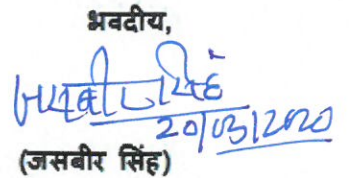 भवदीय,
जसबीर सिंह
20/03/2020
(जसबीर सिंह)